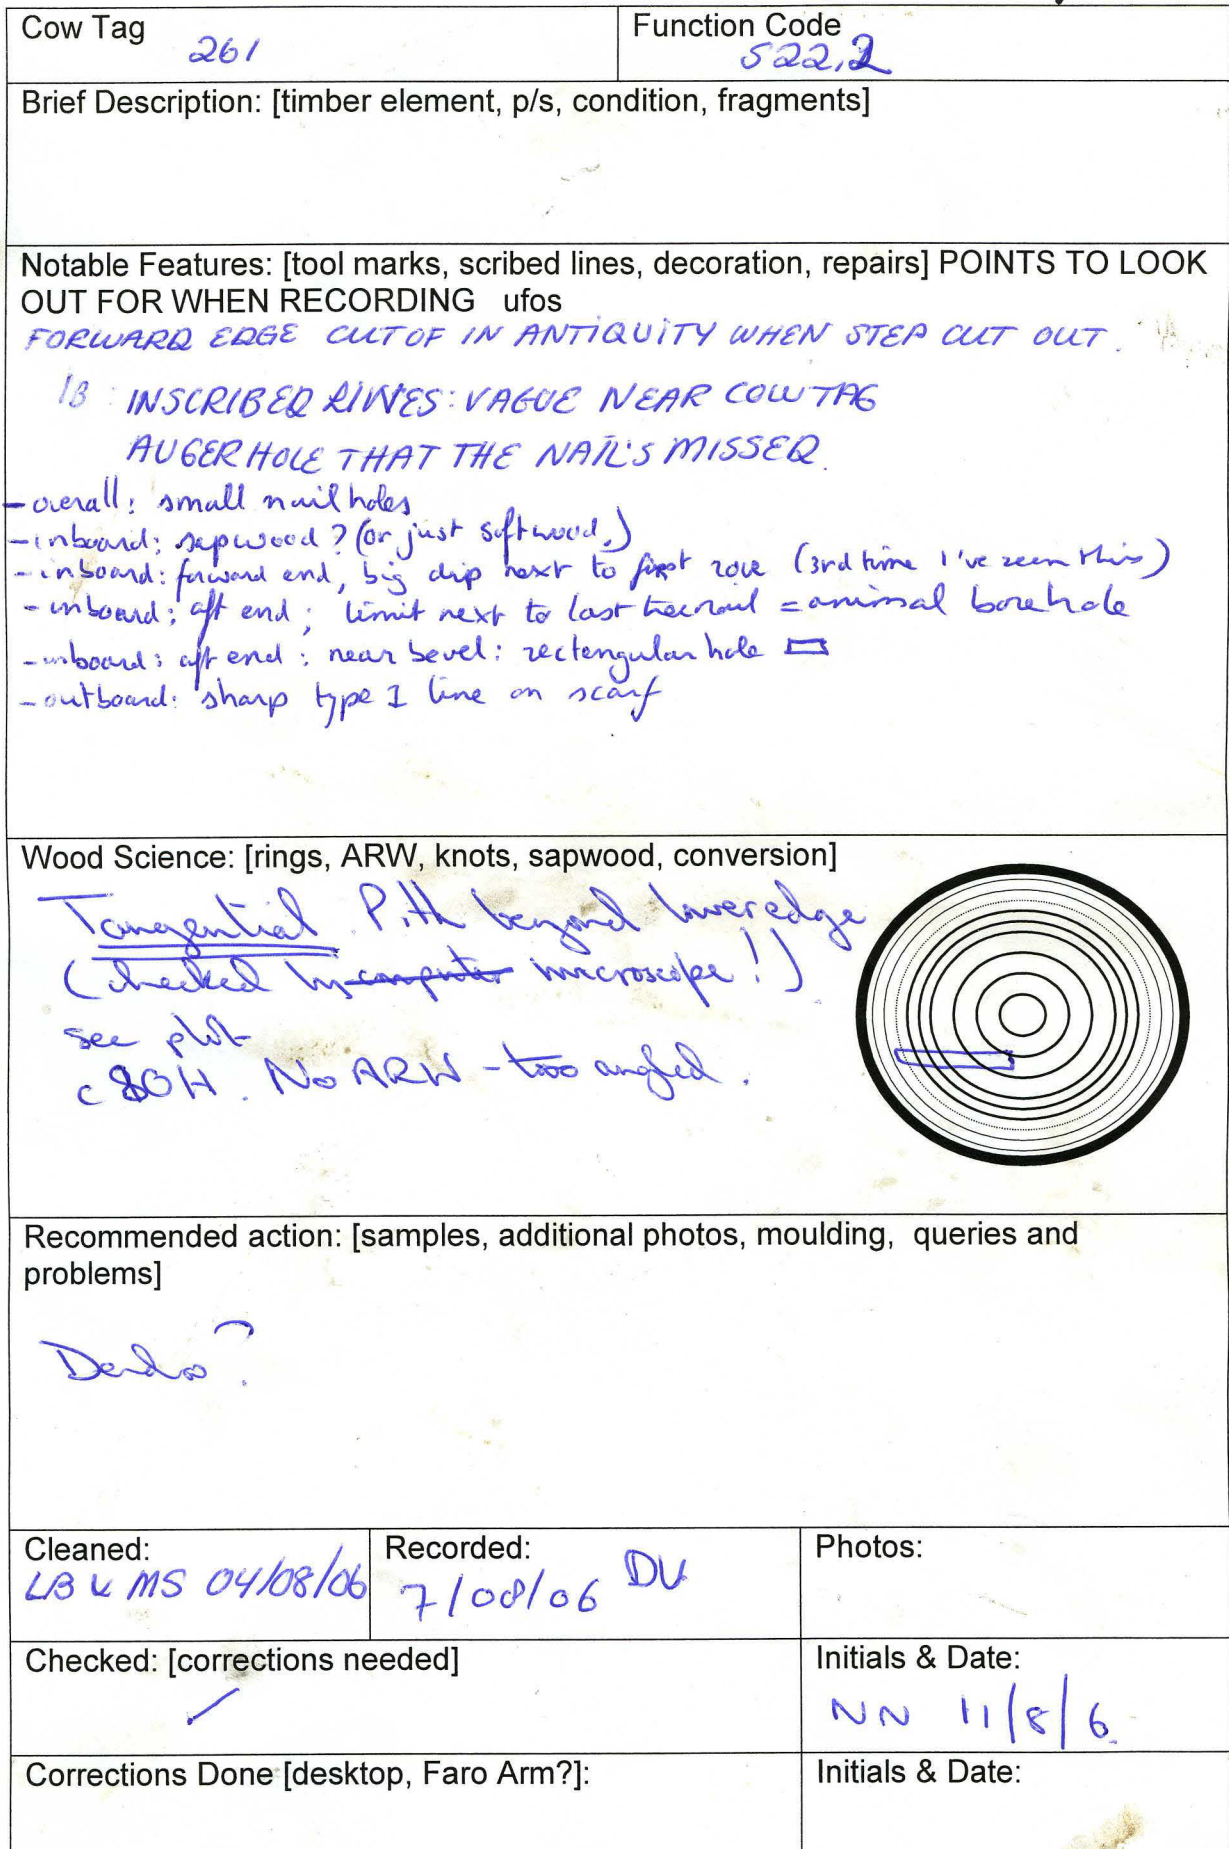 Cow Tag
261
Function Code
S22,2
Brief Description: [timber element, p/s, condition, fragments]
Notable Features: [tool marks, scribed lines, decoration, repairs] POINTS TO LOOK
OUT FOR WHEN RECORDING ufos
FORWARD EDGE CUT OF IN ANTIQUITY WHEN STEP CUT OUT.
IB: INSCRIBED LINES: VAGUE NEAR COW TAG
AUGERHOLE THAT THE NAIL'S MISSED.
- overall: small nail holes
- inboard: sapwood? (or just softwood,)
- inboard: forward end, big dip next to first rove (3rd time I've seen this)
- inboard: aft end; limit next to last treenail = animal borehole
- inboard: aft end: near bevel: rectangular hole
- outboard: sharp type I line on scarf
Wood Science: [rings, ARW, knots, sapwood, conversion]
Tangential. Pith beyond lower edge
(checked by computer microscope!)
see plot
c80H. No ARW - too angled.
Recommended action: [samples, additional photos, moulding, queries and
problems]
Dendro?
Cleaned:
LB & MS 04/08/06
Recorded:
7/08/06 DV
Photos:
Checked: [corrections needed]
✓
Initials & Date:
NN 11/8/6.
Corrections Done [desktop, Faro Arm?]:
Initials & Date: